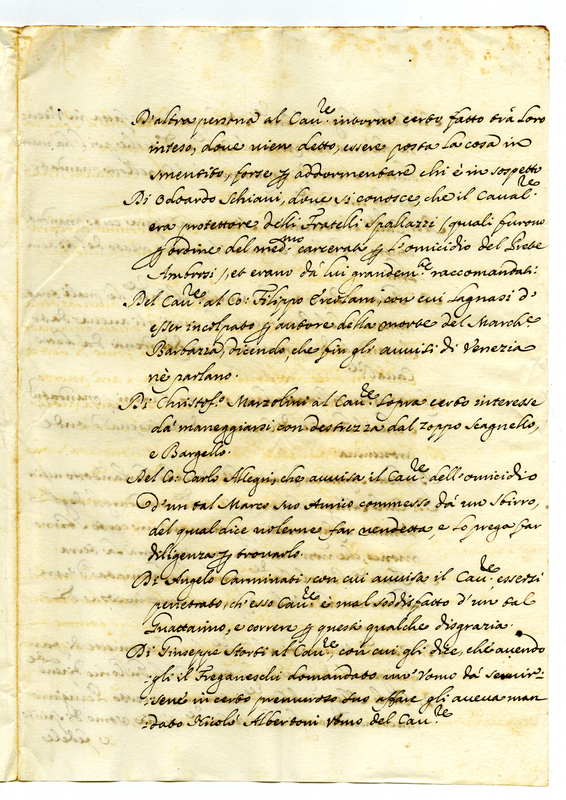 D'altra persona al Cau.re intorno certo fatto trà Loro
inteso, dove vien detto, essere posta la cosa in
smentito, forse p addormentare chi è in sospetto
Di Odoardo Schiavi, dove si conosce, che il Caval.re
era protettore delli Fratelli Spallazzi (quali furono
p ordine del med.mo carcerati p l'omicidio del Prete
Ambrosi), et erano dà lui grandem.te raccomandati:
Del Cau.re al Co: Filippo Ercolani, con cui Lagnasi d'
esser incolpato p autore della morte del March.e
Barbazza, dicendo, che fin gli avvisi di Venezia
nè parlano.
Di Christof.o Marzolini al Cau.re sopra certo interesse
dà maneggiarsi con destrezza dal zoppo Scagnello,
e Bargello.
Del Co: Carlo Allegri, che avvisa il Cau.re dell'omicidio
d'un tal Marco suo Amico commesso dà un sbirro,
del qual dice volerne far vendetta, e lo prega far
diligenza p trovarlo.
Di Angelo Carminati, con cui avvisa il Cau.re essersi
penetrato, ch'esso Cau.re è mal soddisfatto d'un tal
Guattarino, e correre p questo qualche disgrazia.
Di Giuseppe Storti al Cau.re, con cui gli dice, che avendo
gli il Freganeschi domandato un'Vomo dà servir=
sene in certo premuroso suo affare gli aveva man
dato Nicolò Albertoni Vomo del Cau.re